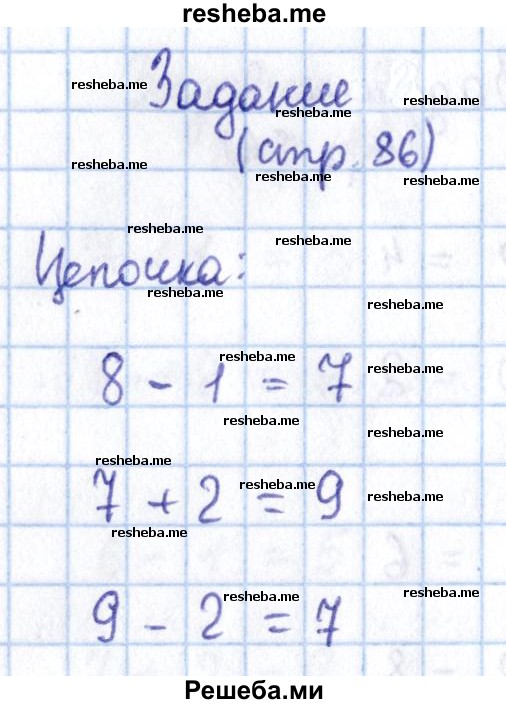 resheba.me
resheba.me
Задание
resheba.me
resheba.me
(стр. 86)
resheba.me
resheba.me
resheba.me
resheba.me
resheba.me
Цепочка:
resheba.me
resheba.me
resheba.me
resheba.me
8 - 1 = 7
resheba.me
resheba.me
resheba.me
7 + 2 = 9
resheba.me
resheba.me
resheba.me
resheba.me
resheba.me
9 - 2 = 7
resheba.me
Решеба.ми